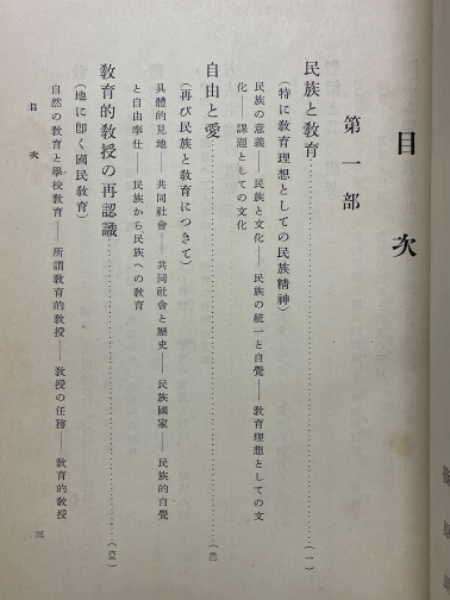 目次
第一部
民族と教育……………………(一)
(特に教育理想としての民族精神)
民族の意義――民族と文化――民族の統一と自覺――教育理想としての文
化――課題としての文化
自由と愛……………………
(再び民族と教育につきて)
具體的見地――共同社會――共同社會と歷史――民族國家――民族的自覺
と自由奉仕――民族から民族への教育
教育的教授の再認識……………………
(地に卽く國民教育)
自然の教育と學校教育――所謂教育的教授――教授の任務――教育的教授
目次